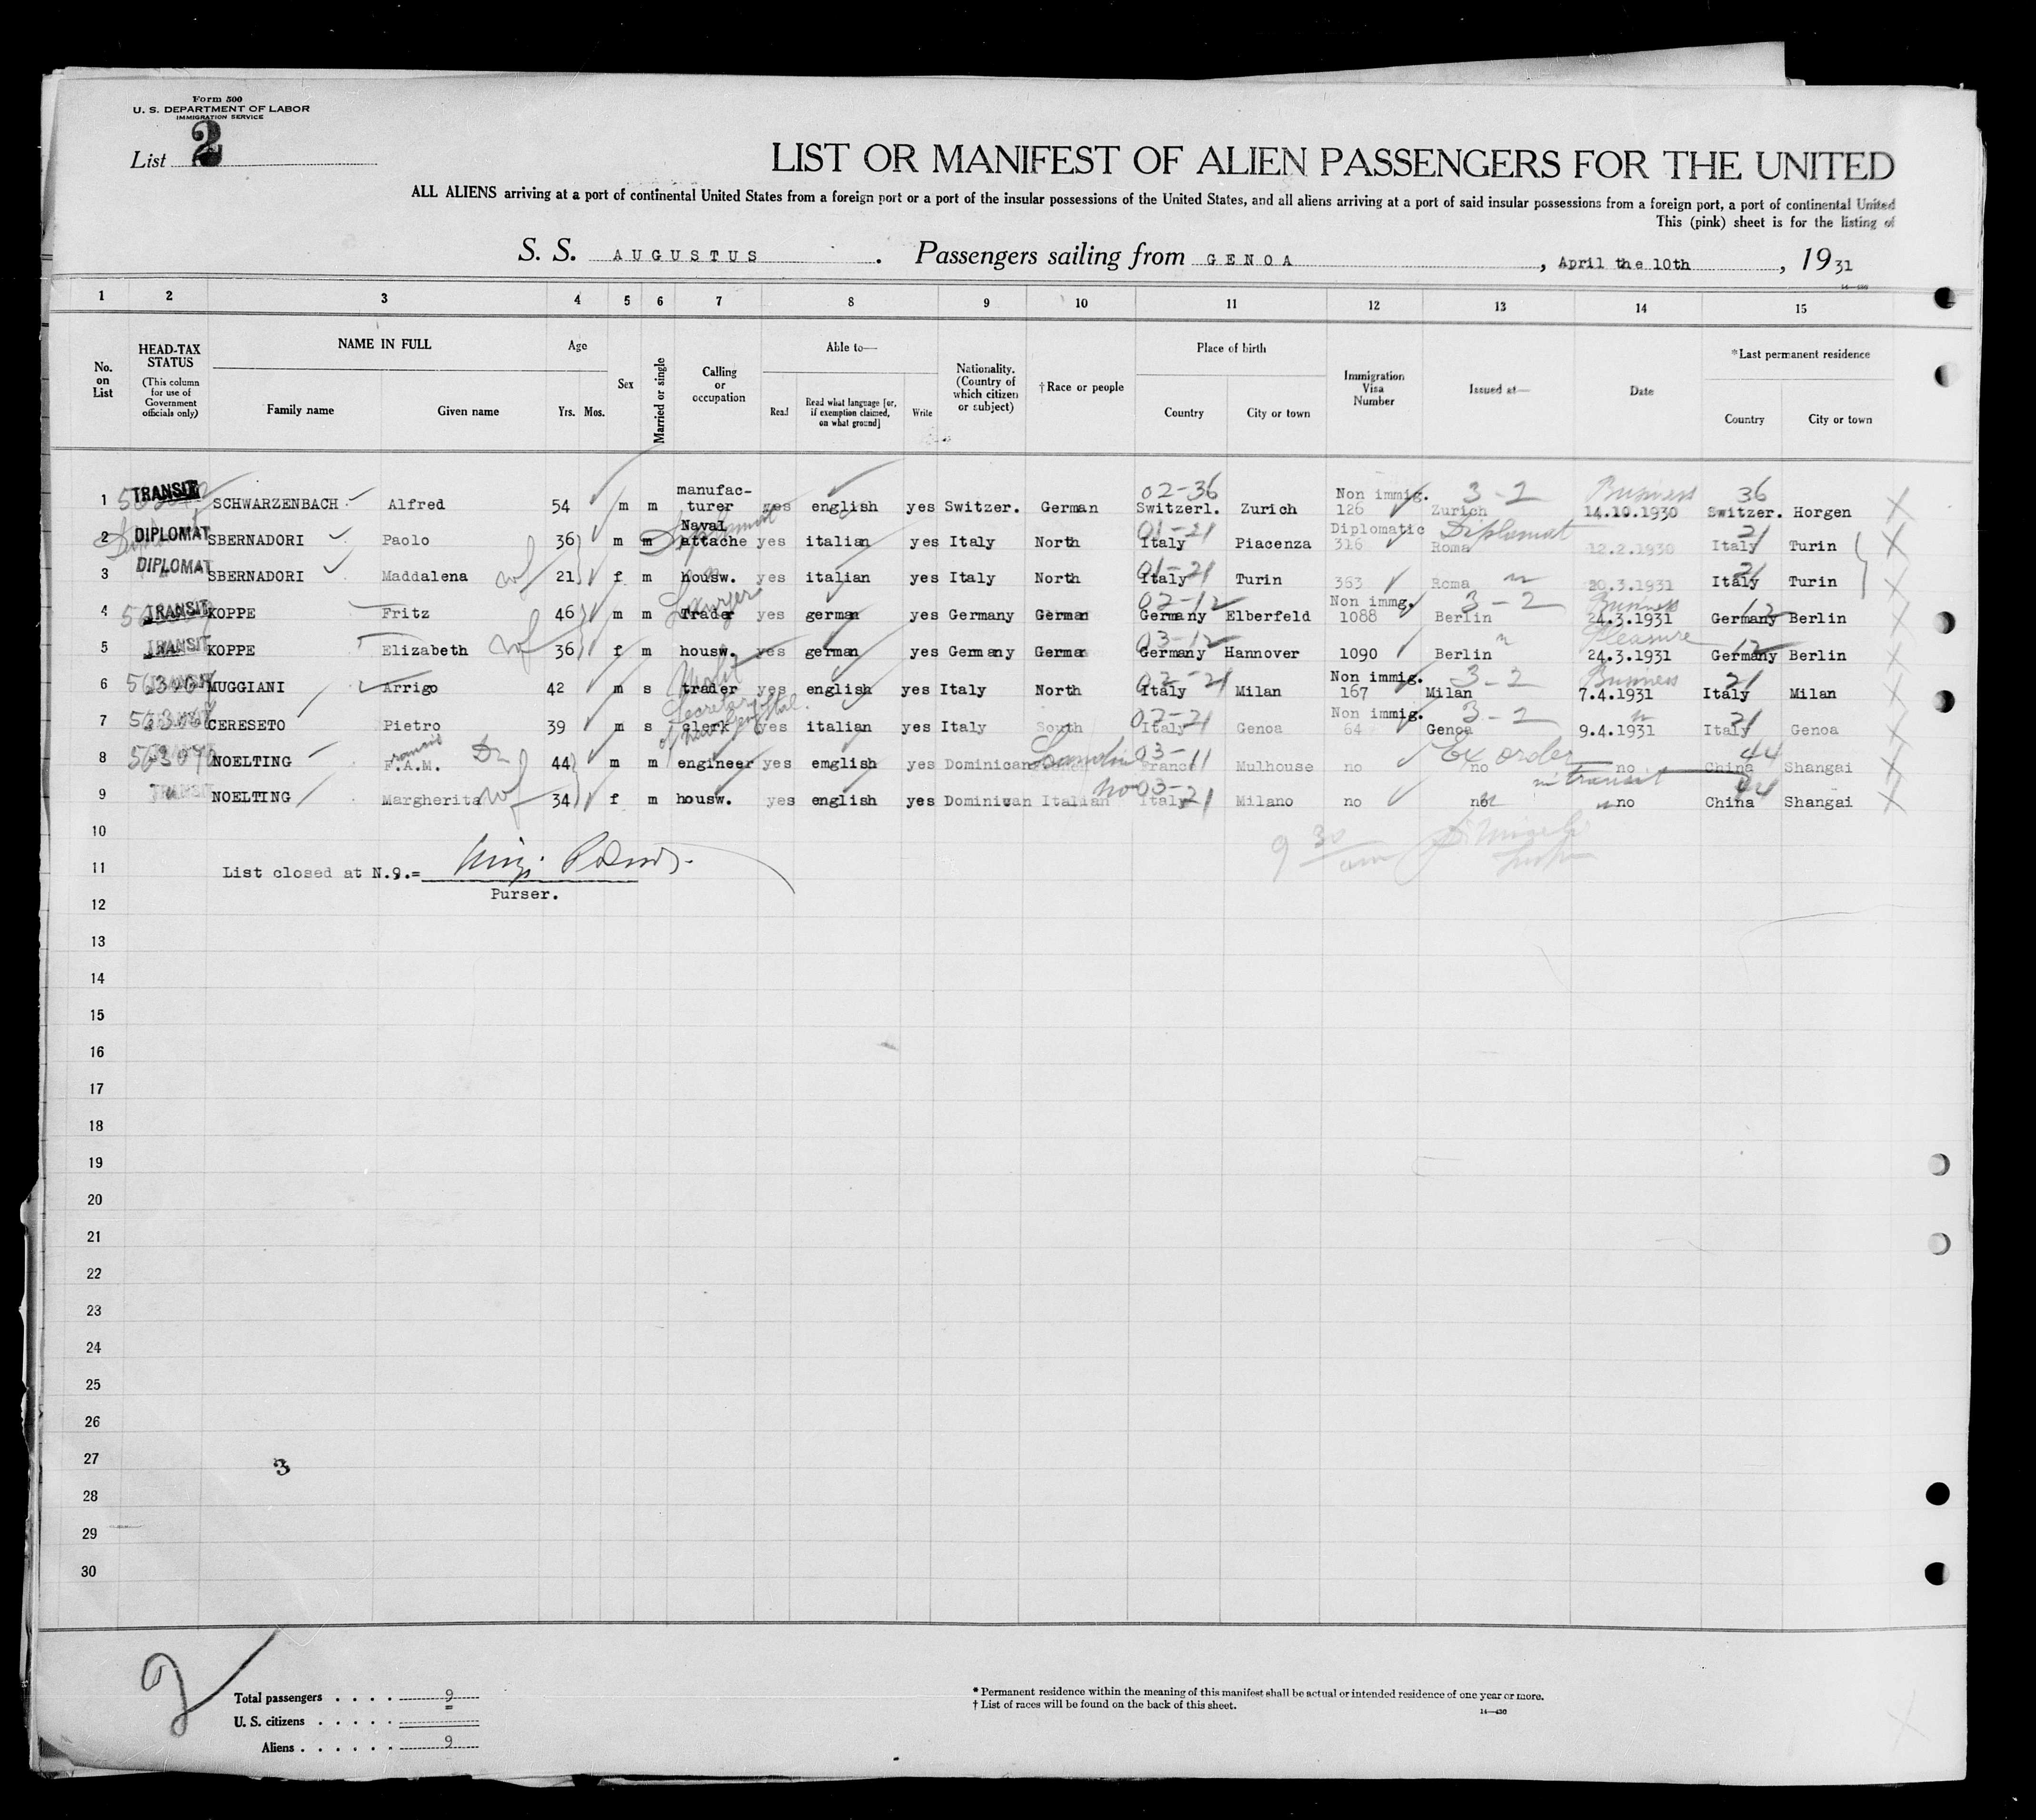 Form 500
U. S. DEPARTMENT OF LABOR
IMMIGRATION SERVICE
List 2
LIST OR MANIFEST OF ALIEN PASSENGERS FOR THE UNITED
ALL ALIENS arriving at a port of continental United States from a foreign port or a port of the insular possessions of the United States, and all aliens arriving at a port of said insular possessions from a foreign port, a port of continental United
This (pink) sheet is for the listing of
S. S. AUGUSTUS. Passengers sailing from GENOA, April the 10th, 1931
1 2 3 4 5 6 7 8 9 10 11 12 13 14 15
No. on List
HEAD-TAX STATUS (This column for use of Government officials only)
NAME IN FULL Family name Given name
Age Yrs. Mos.
Sex
Married or single
Calling or occupation
Able to— Read Read what language [or, if exemption claimed, on what ground] Write
Nationality. (Country of which citizen or subject)
†Race or people
Place of birth Country City or town
Immigration Visa Number
Issued at—
Date
*Last permanent residence Country City or town
02-36 Non immig. 3-2 Business 36
1 TRANSIT SCHWARZENBACH Alfred 54 m m manufac-turer yes english yes Switzer. German Switzerl. Zurich 126 Zurich 14.10.1930 Switzer. Horgen
Diplomat 01-21 Diplomatic Diplomat 21
2 DIPLOMAT SBERNADORI Paolo 36 m m Naval attache yes italian yes Italy North Italy Piacenza 316 Roma 12.2.1930 Italy Turin
01-21 21
3 DIPLOMAT SBERNADORI Maddalena wf 21 f m housw. yes italian yes Italy North Italy Turin 363 Roma " 20.3.1931 Italy Turin
Lawyer 02-12 Non immg. 3-2 Business 12
4 TRANSIT KOPPE Fritz 46 m m Trader yes german yes Germany German Germany Elberfeld 1088 Berlin 24.3.1931 Germany Berlin
03-12 " Pleasure 12
5 TRANSIT KOPPE Elizabeth wf 36 f m housw. yes german yes Germany German Germany Hannover 1090 Berlin 24.3.1931 Germany Berlin
02-21 Non immig. 3-2 Business 21
6 MUGGIANI Arrigo 42 m s trader yes english yes Italy North Italy Milan 167 Milan 7.4.1931 Italy Milan
Secretary 02-21 Non immig. 3-2 " 21
7 CERESETO Pietro 39 m s clerk yes italian yes Italy South Italy Genoa 64 Genoa 9.4.1931 Italy Genoa
Dr 03-11 Ex order 44
8 563070 NOELTING F.A.M. 44 m m engineer yes emglish yes Dominican France Mulhouse no no no China Shangai
no 03-21 in transit 44
9 TRANSIT NOELTING Margherita wf 34 f m housw. yes english yes Dominican Italian Italy Milano no no no China Shangai
10
9 30 am
11 List closed at N.9.=
Purser.
12
13
14
15
16
17
18
19
20
21
22
23
24
25
26
27
3
28
29
30
2
Total passengers . . . . 9
U. S. citizens . . . . .
Aliens . . . . . . 9
* Permanent residence within the meaning of this manifest shall be actual or intended residence of one year or more.
† List of races will be found on the back of this sheet.
14—430